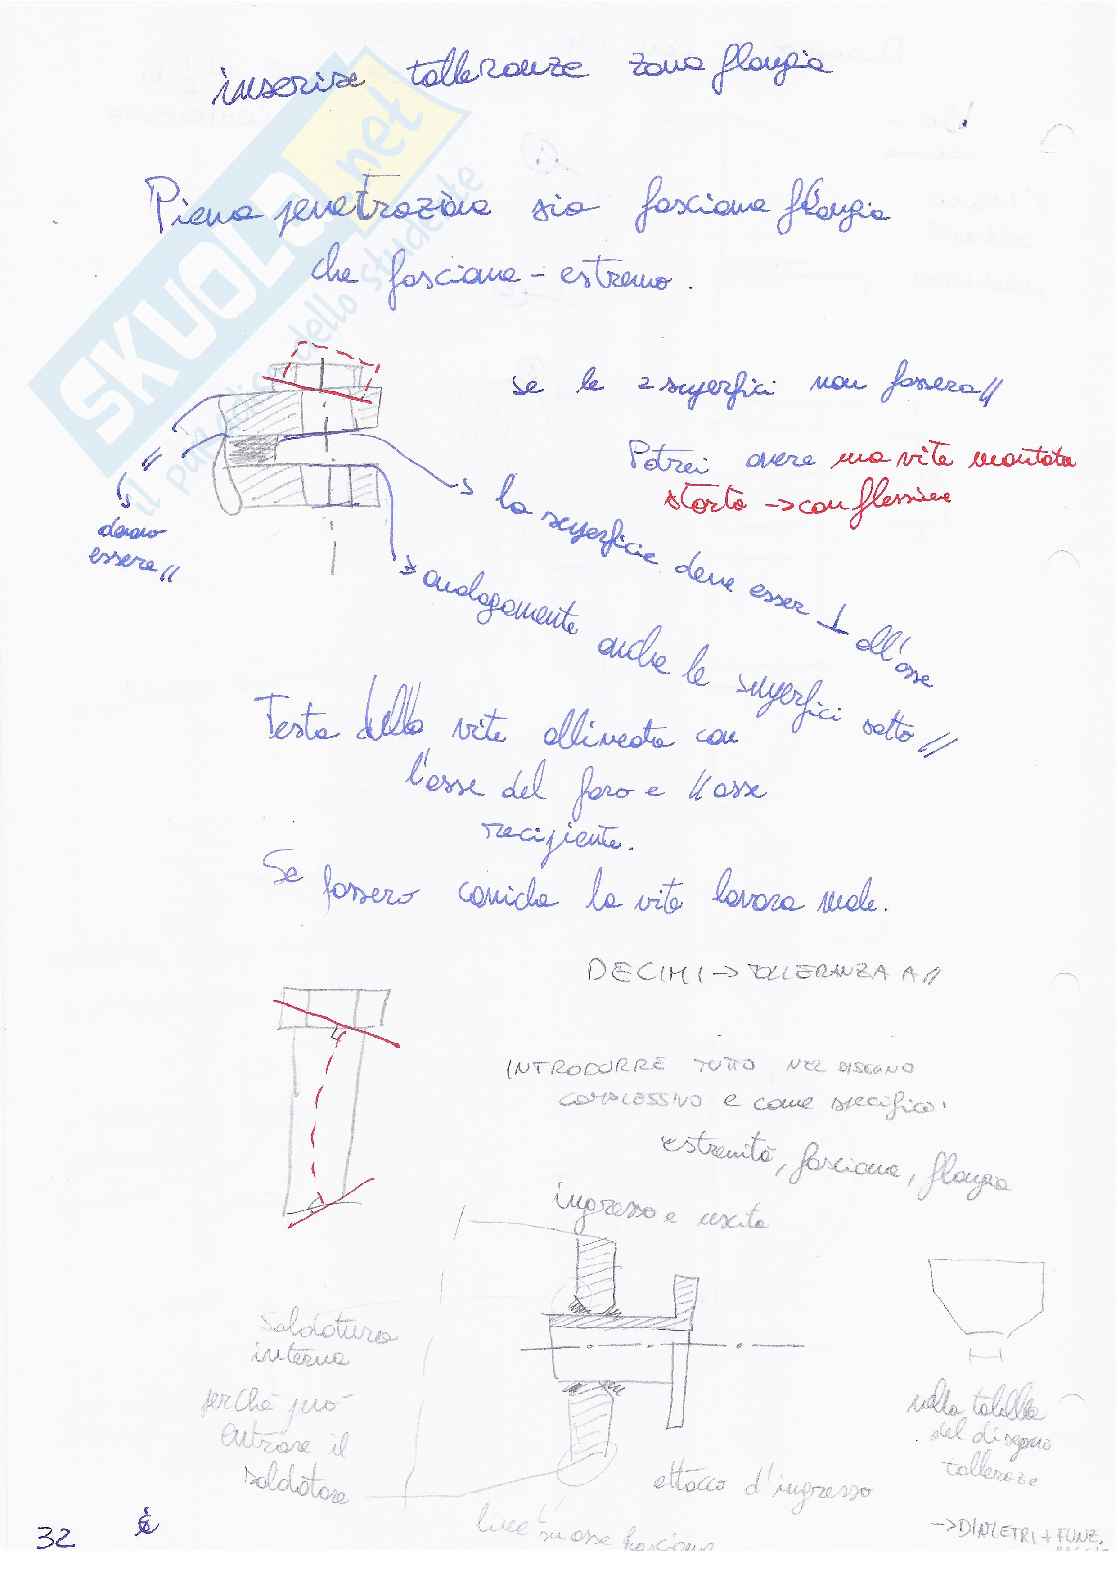 inserire tolleranze zona flangia
Piena penetrazione sia fasciame flangia
che fasciame - estremo.
SKUOLA.net
il paradiso dello studente
se le 2 superfici non fossero //
Potrei avere una vite montata
storta -> con flessione
//
devono
essere //
-> la superficie deve esser ⊥ all'asse
-> analogamente anche le superfici sotto //
Testa della vite allineata con
l'asse del foro e // asse
recipiente.
Se fossero coniche la vite lavora male.
DECIMI -> TOLLERANZA A //
INTRODURRE TUTTO NEL DISEGNO
COMPLESSIVO e come specifico:
estremità, fasciame, flangia
ingresso e uscita
Saldatura
interna
perché può
entrare il
saldatore
attacco d'ingresso
nella tabella
del disegno
tolleranze
-> DIAMETRI + FUNZ.
32